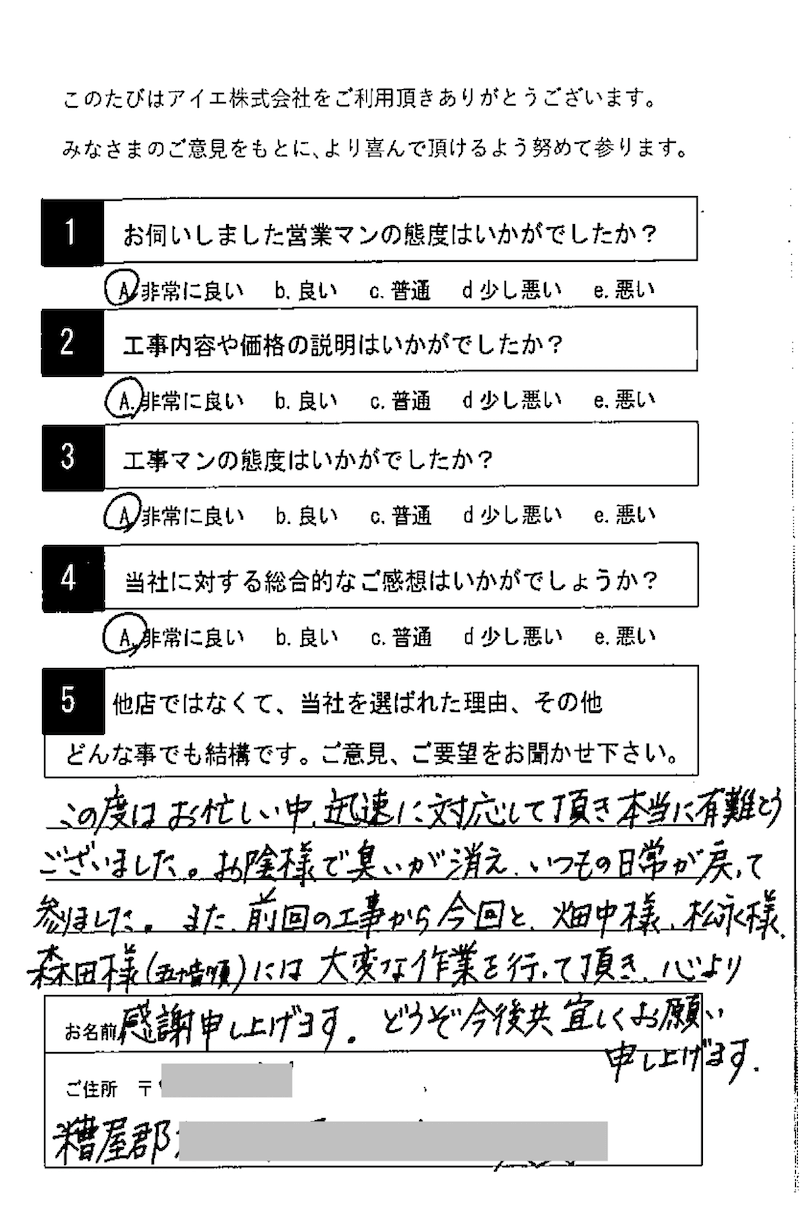 このたびはアイエ株式会社をご利用頂きありがとうございます。
みなさまのご意見をもとに、より喜んで頂けるよう努めて参ります。
1 お伺いしました営業マンの態度はいかがでしたか?
A.非常に良い b.良い c.普通 d 少し悪い e.悪い
2 工事内容や価格の説明はいかがでしたか?
A.非常に良い b.良い c.普通 d 少し悪い e.悪い
3 工事マンの態度はいかがでしたか?
A.非常に良い b.良い c.普通 d 少し悪い e.悪い
4 当社に対する総合的なご感想はいかがでしょうか?
A.非常に良い b.良い c.普通 d 少し悪い e.悪い
5 他店ではなくて、当社を選ばれた理由、その他
どんな事でも結構です。ご意見、ご要望をお聞かせ下さい。
この度はお忙しい中、迅速に対応して頂き本当に有難とう
ございました。お陰様で臭いが消え、いつもの日常が戻って
参りました。また、前回の工事から今回と、畑中様、松永様、
森田様(五十音順)には大変な作業を行って頂き、心より
お名前 感謝申し上げます。どうぞ今後共宜しくお願い
申し上げます.
ご住所 〒
糟屋郡